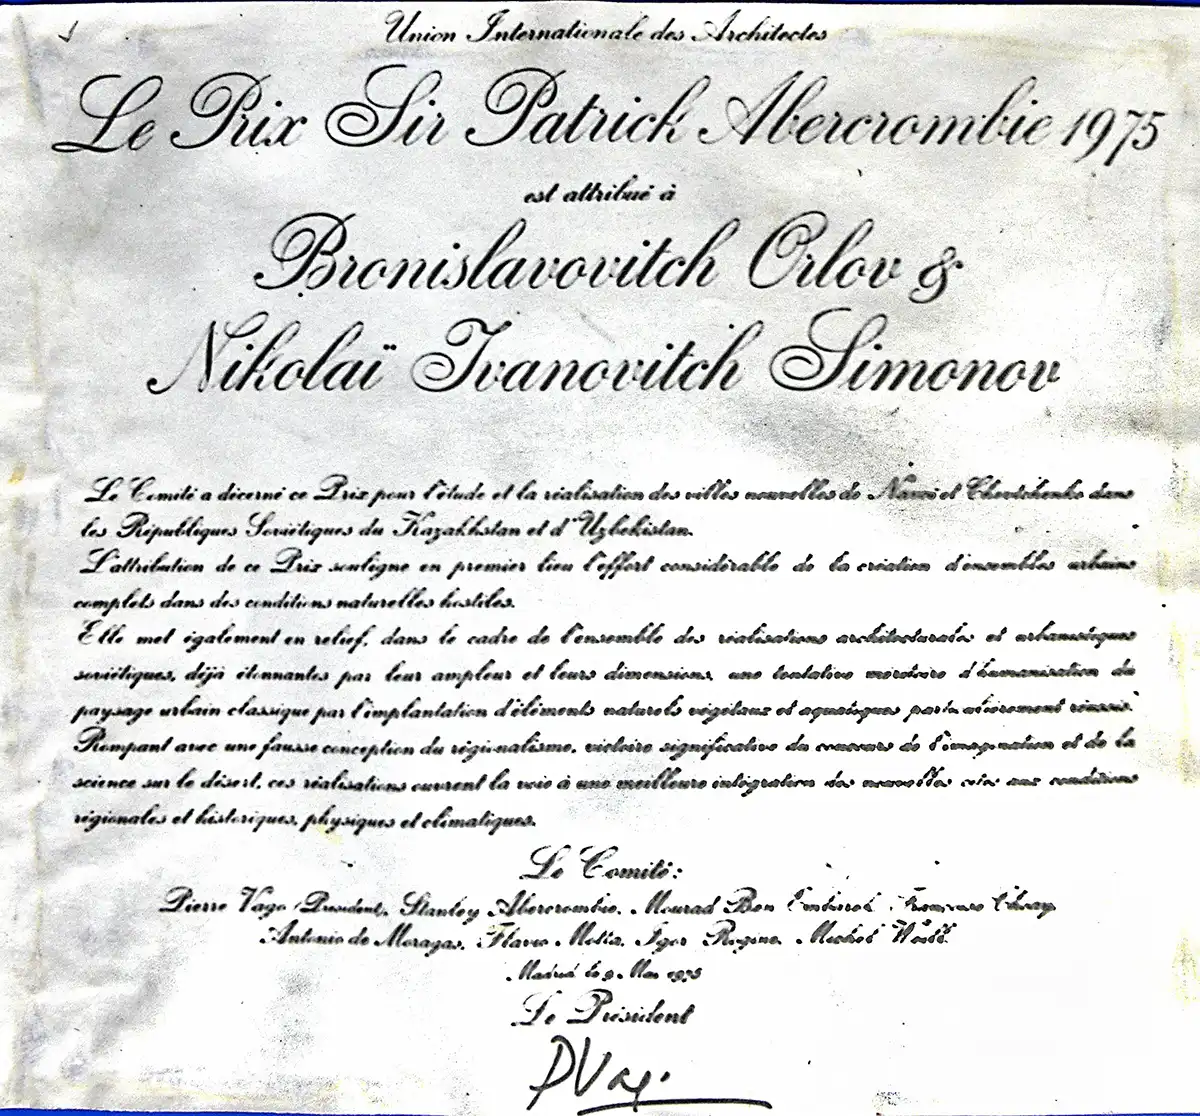 Union Internationale des Architectes
Le Prix Sir Patrick Abercrombie 1975
est attribué à
Bronislavovitch Orlov &
Nikolaï Ivanovitch Simonov
Le Comité a décerné ce Prix pour l'étude et la réalisation des villes nouvelles de Navoi et Chevtchenko dans
les Républiques Soviétiques du Kazakhstan et d'Uzbekistan.
L'attribution de ce Prix souligne en premier lieu l'effort considérable de la création d'ensembles urbains
complets dans des conditions naturelles hostiles.
Elle met également en relief, dans le cadre de l'ensemble des réalisations architecturales et urbanistiques
soviétiques, déjà étonnantes par leur ampleur et leurs dimensions, une tentative méritoire d'humanisation du
paysage urbain classique par l'implantation d'éléments naturels végétaux et aquatiques particulièrement réussie.
Rompant avec une fausse conception du régionalisme, victoire significative du concours de l'imagination et de la
science sur le désert, ces réalisations ouvrent la voie à une meilleure intégration des nouvelles cités aux conditions
régionales et historiques, physiques et climatiques.
Le Comité:
Pierre Vago (President), Stanley Abercrombie, Mourad Ben Embarek, Françoise Choay
Antonio de Moragas, Igor Michel
Madrid le 9 Mai 1975
Le Président
PVago